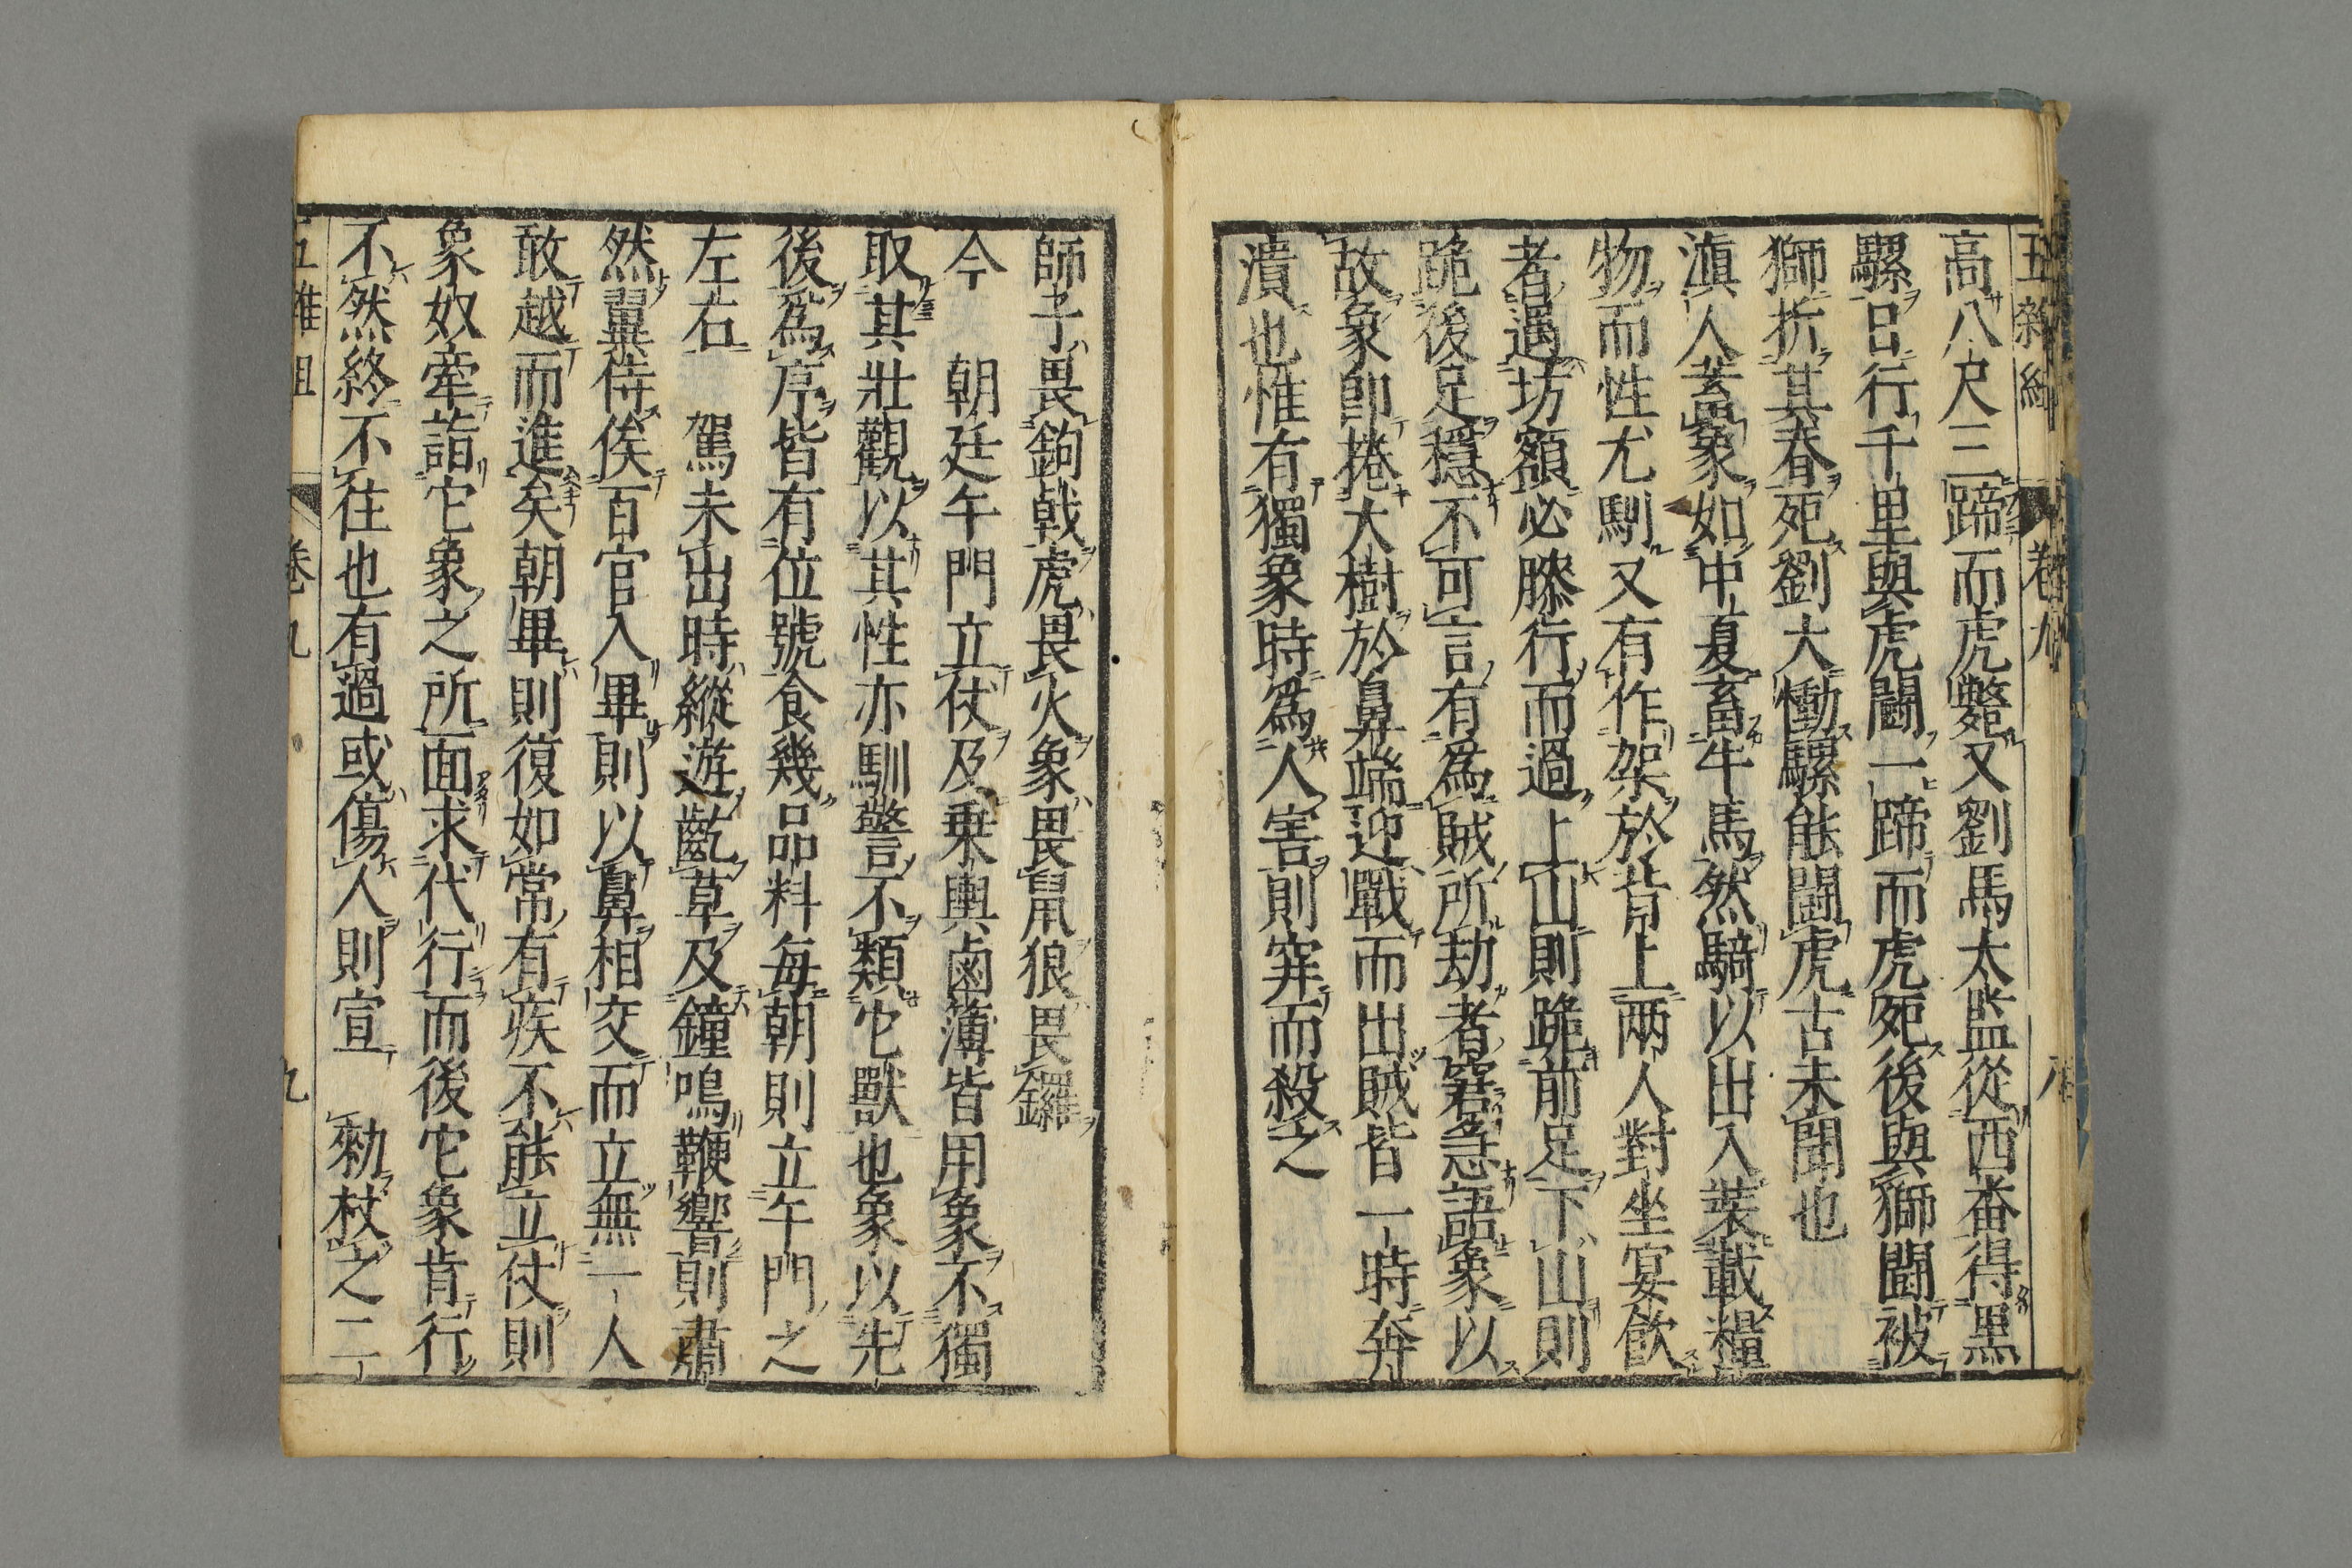 高八尺三蹄而虎斃又劉馬太監從西番得黒
騾日行千里與虎闘一蹄而虎死後與獅闘被
獅折其脊死劉大慟騾能闘虎古未聞也
滇人蓄象如中夏畜牛馬然騎以出入裝載糧
物而性尤馴又有作架於背上兩人對坐宴飲
者遇坊額必膝行而過上山則跪前足下山則
跪後足穩不可言有爲賊所劫者窘急語象以
故象即捲大樹於鼻端迎戰而出賊皆一時奔
潰也惟有獨象時爲人害則穽而殺之
師子畏鉤戟虎畏火象畏鼠狼畏鑼
今 朝廷午門立仗及乗輿鹵簿皆用象不獨
取其壯觀以其性亦馴警不類它獸也象以先
後爲序皆有位號食幾品料毎朝則立午門之
左右 駕未出時縱遊齕草及鐘鳴鞭響則肅
然翼侍俟百官入畢則以鼻相交而立無一人
敢越而進矣朝畢則復如常有疾不能立仗則
象奴牽詣它象之所面求代行而後它象肯行
不然終不往也有過或傷人則宣 勑杖之二
卷九
九